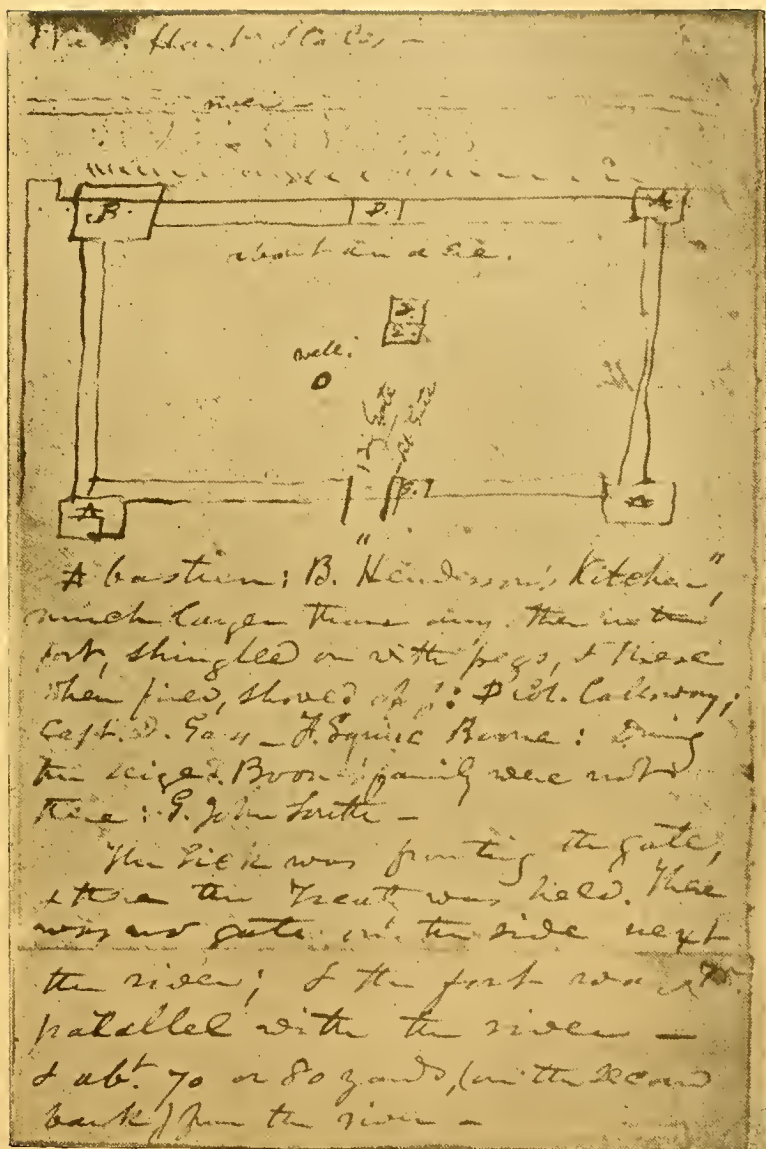 river —
B.
D.
A
about an acre.
well:
A
A
A bastion; B. "Henderson's Kitchen",
much larger than any other in the
fort, shingled on with pegs, & these
when fired, shoved off: D Col. Calloway;
Capt. D. Gass — F. Squire Boone: During
the seige D. Boone's family were not
there: G. John South —
The Lick was fronting the gate,
& there the Treaty was held. There
was no gate on the side next
the river; & the fort was
parallel with the river —
& abt. 70 or 80 yards, (on the second
bank) from the river —